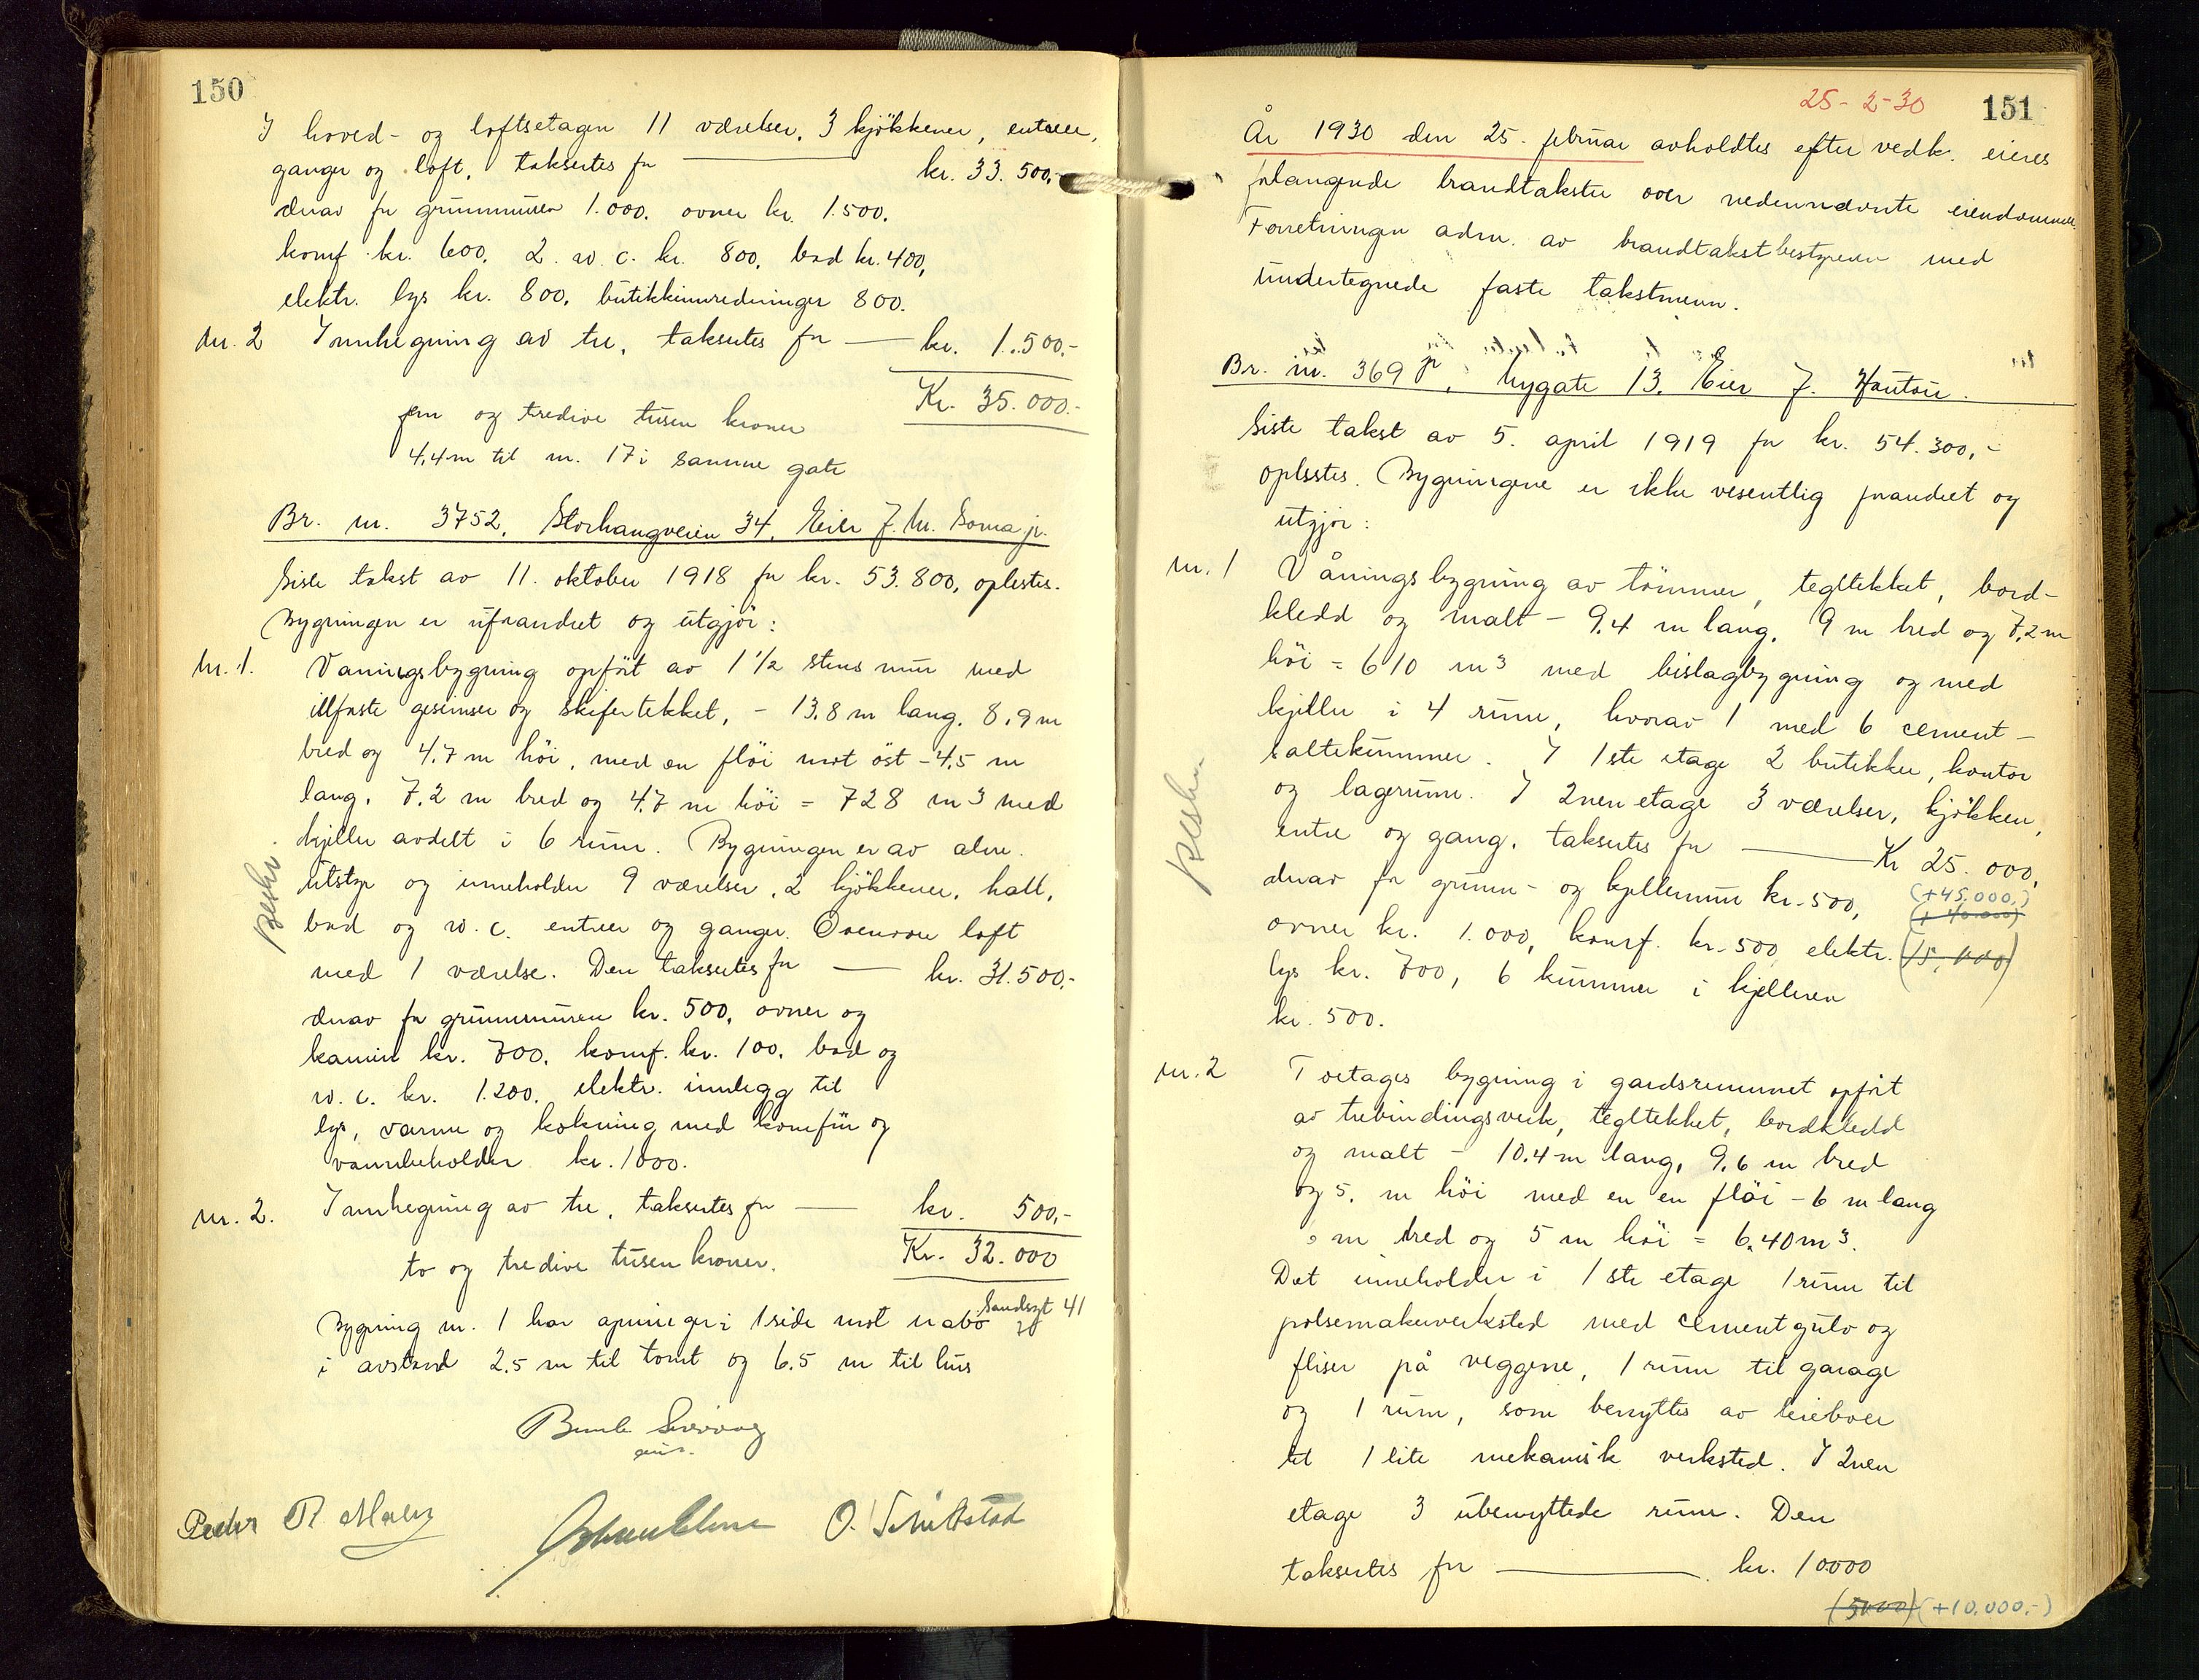 150
I hoved- og loftsetagen 11 værelser, 3 kjökkener, entreer,
ganger og loft, taksertes for kr. 33.500,-
derav for grunnmuren 1.000. ovner kr. 1.500.
komf. kr. 600, 2 w.c. kr. 800, bad kr. 400,
elektr. lys kr. 800, butikkinnredninger 800.
nr. 2 Innhegning av tre, taksertes for — kr. 1.500.-
Kr. 35.000.-
fem og tredive tusen kroner
4,4 m til nr. 17 i samme gate
Br. nr. 3752, Storhaugveien 34, Eier J. M. Soma jr.
Siste takst av 11. oktober 1918 for kr. 53.800, oplestes.
Bygningen er uforandret og utgjör:
Nr. 1. Vaningsbygning opfört av 1 1/2 stens mur med
illfaste gesimser og skifertekket, - 13,8 m lang, 8,9 m
bred og 4,7 m höi, med en flöi mot öst - 4,5 m
lang, 7,2 m bred og 4,7 m höi = 728 m3 med
kjeller avdelt i 6 rum. Bygningen er av alm.
utstyr og inneholder 9 værelser, 2 kjökkener, hall,
bad og w.c. entreer og ganger. Ovenover loft
med 1 værelse. Den taksertes for — kr. 31.500,-
derav for grunnmuren kr. 500, ovner og
kamin kr. 700, komf. kr. 100, bad og
w.c. kr. 1.200, elektr. innlegg til
lys, varme og kokning med komfür og
vannbeholder kr. 1000.
nr. 2. Innhegning av tre, taksertes for — kr. 500,-
Kr. 32.000
to og tredive tusen kroner.
Bygning nr. 1 har apninger i 1 side mot nabo Sandsgt 41
i avstand 2,5 m til tomt og 6.5 m til hus
Peder R.
O.
25-2-30
151
År 1930 den 25. februar avholdtes efter vedk. eieres
forlangende brandtakster over nedennævnte eiendommer.
Forretningen adm. av brandtakstbestyreren med
undertegnede faste takstmenn.
Br. nr. 369 , Nygate 13. Eier J.
Siste takst av 5. april 1919 for kr. 54.300,-
oplestes. Bygningene er ikke vesentlig forandret og
utgjör:
nr. 1 Våningsbygning av tömmer, tegltekket, bord-
kledd og malt - 9.4 m lang, 9 m bred og 7,2 m
höi = 610 m3 med bislagbygning og med
kjeller i 4 rum, hvorav 1 med 6 cement-
saltekummer. I 1ste etage 2 butikker, kontor
og lagerrum. I 2nen etage 3 værelser, kjökken,
entre og gang, taksertes for — Kr 25.000,
derav for grunn- og kjellermur kr. 500, (+45.000,)
(+ 40.000)
ovner kr. 1.000, komf. kr. 500, elektr. (15,000)
lys kr. 700, 6 kummer i kjelleren
kr. 500.
nr. 2 Toetages bygning i gardsrummet opfört
av trebindingsverk, tegltekket, bordkledd
og malt - 10.4 m lang, 9.6 m bred
og 5. m höi med en en flöi - 6 m lang
m bred og 5 m höi = 6.40 m3.
Det inneholder i 1ste etage 1 rum til
pølsemakerverksted med cementgulv og
fliser på veggene, 1 rum til garage
og 1 rum, som benyttes av leieboer
til 1 lite mekanisk verksted. I 2nen
etage 3 ubenyttede rum. Den
taksertes for — kr. 10000
(5000) (+10.000.-)